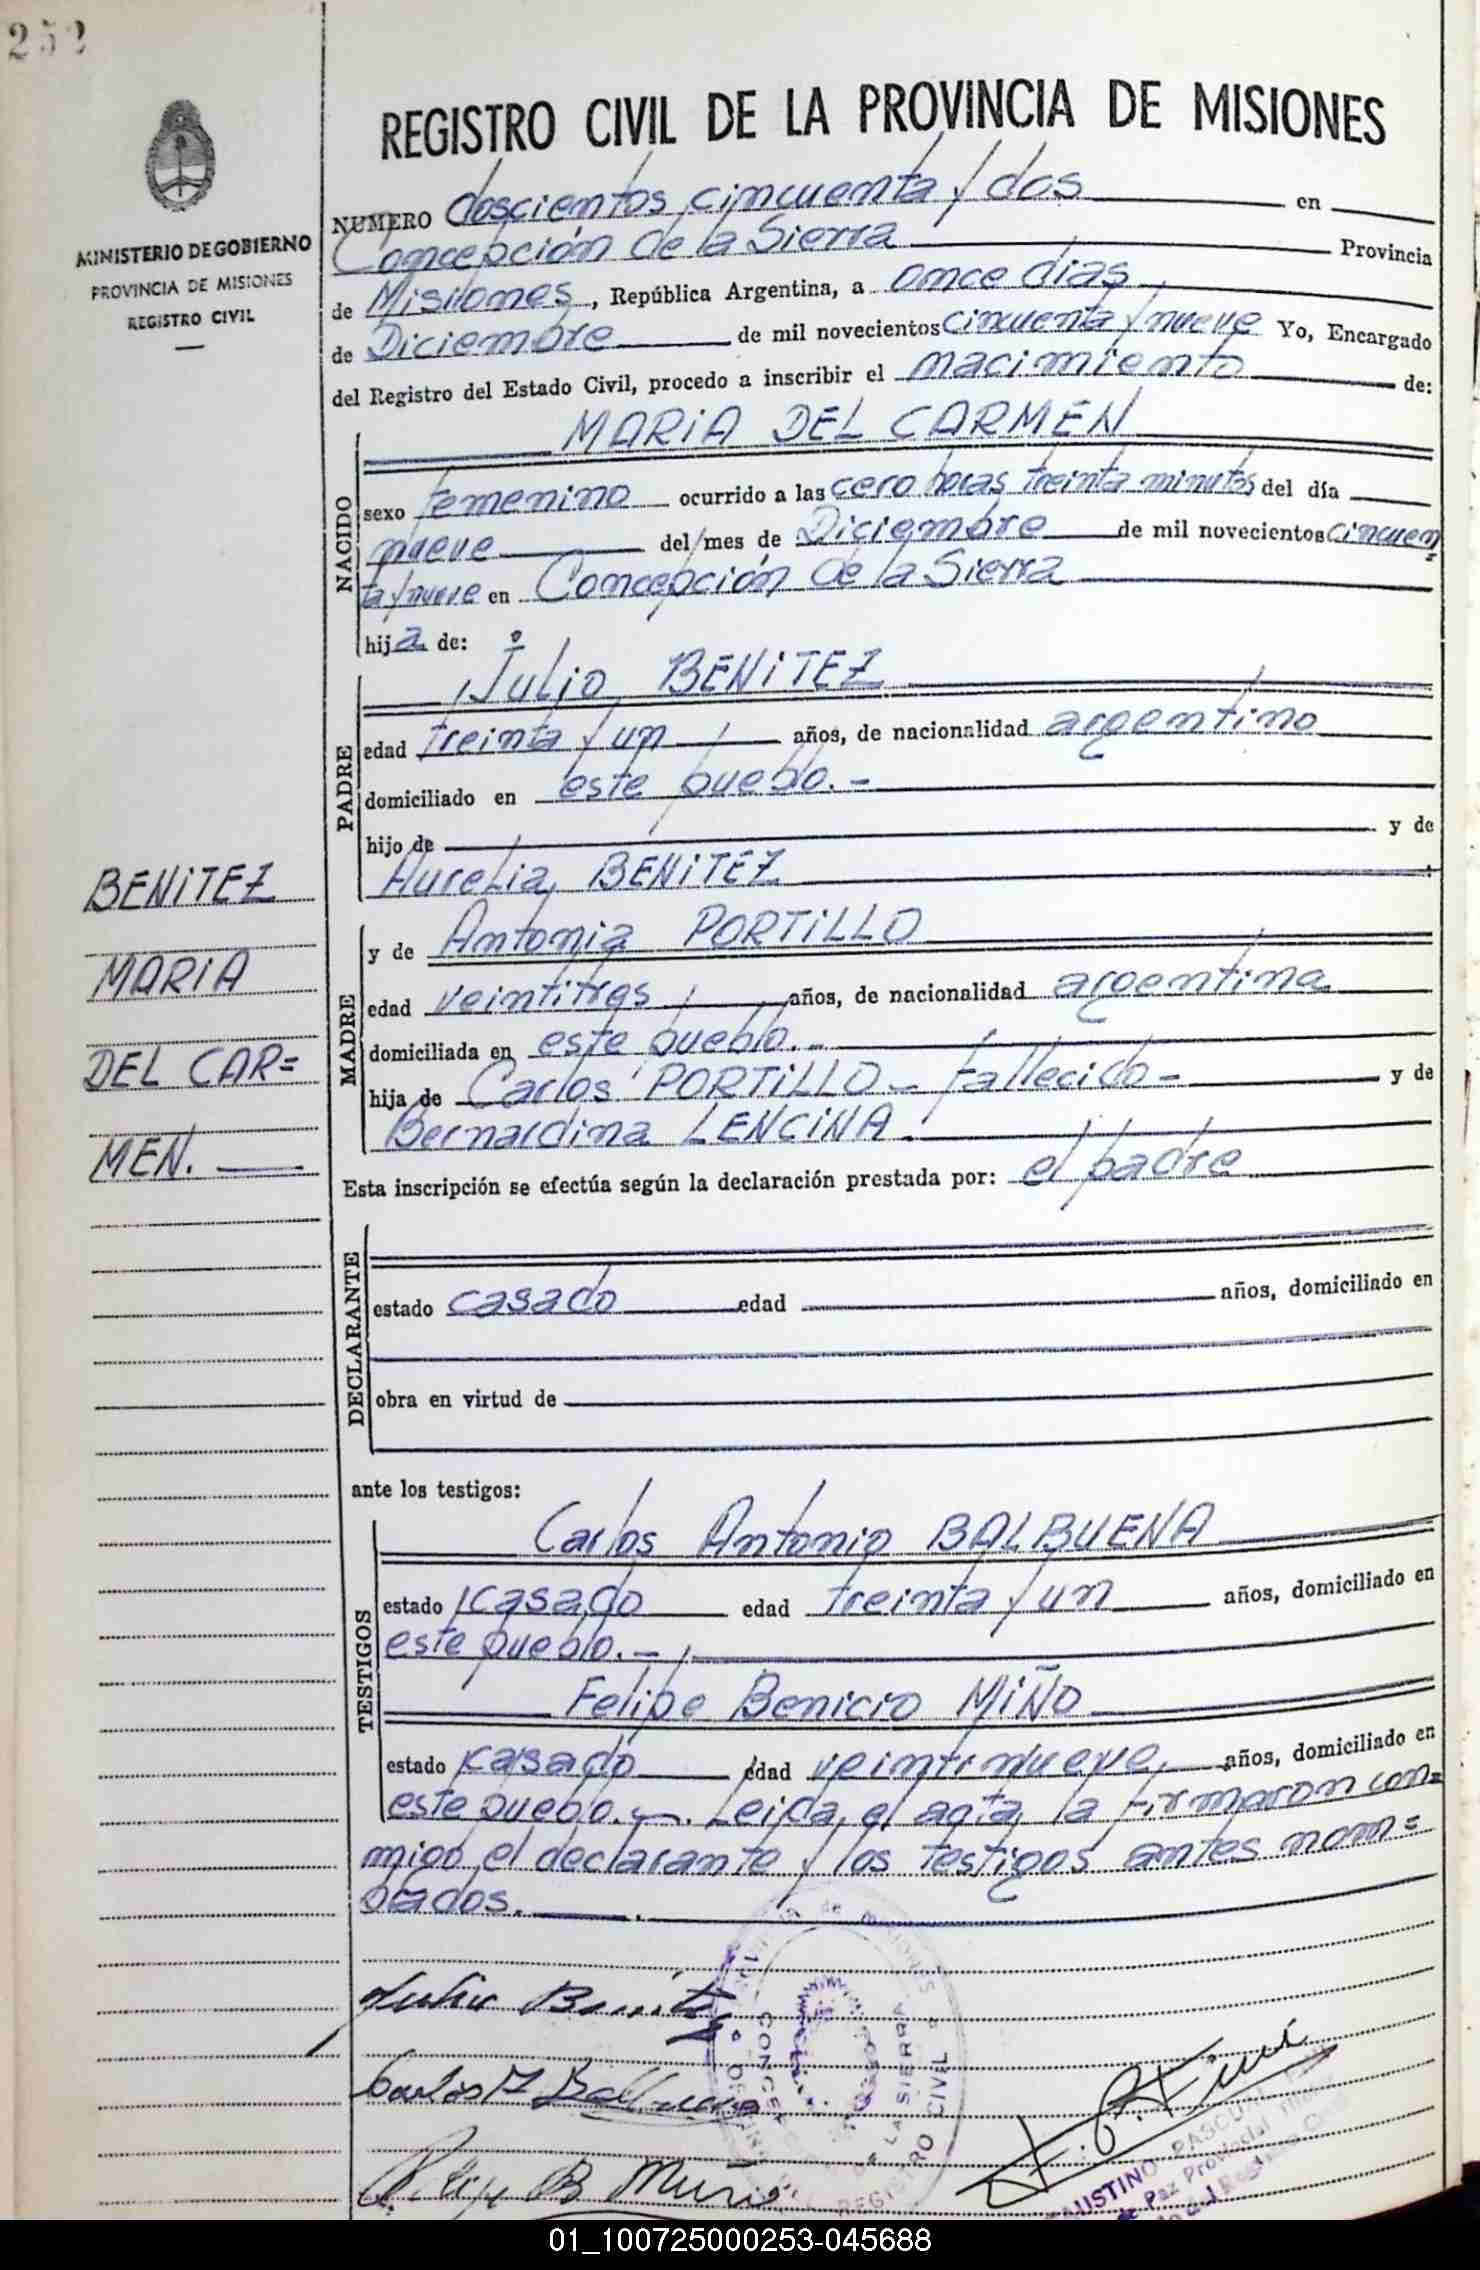 252
MINISTERIO DE GOBIERNO
PROVINCIA DE MISIONES
REGISTRO CIVIL
REGISTRO CIVIL DE LA PROVINCIA DE MISIONES
NUMERO doscientos cincuenta y dos en
Concepción de la Sierra Provincia
de Misiones, República Argentina, a once dias
de Diciembre de mil novecientos cincuenta y nueve Yo, Encargado
del Registro del Estado Civil, procedo a inscribir el nacimiento de:
NACIDO
MARIA DEL CARMEN
sexo femenino ocurrido a las cero horas treinta minutos del día
nueve del mes de Diciembre de mil novecientos cincuen=
ta y nueve en Concepción de la Sierra
hija de:
PADRE
Julio BENITEZ
edad treinta y un años, de nacionalidad argentino
domiciliado en este pueblo.-
hijo de y de
Aurelia BENITEZ
MADRE
y de Antonia PORTILLO
edad veintitres años, de nacionalidad argentina
domiciliada en este pueblo.-
hija de Carlos PORTILLO - fallecido - y de
Bernardina LENCINA.
Esta inscripción se efectúa según la declaración prestada por: el padre
DECLARANTE
estado casado edad años, domiciliado en
obra en virtud de
ante los testigos:
TESTIGOS
Carlos Antonio BALBUENA
estado casado edad treinta y un años, domiciliado en
este pueblo.-
Felipe Benicio MIÑO
estado casado edad veintinueve, años, domiciliado en
este pueblo.-. Leida el acta, la firmaron con=
migo el declarante y los testigos antes nom=
brados.
BENITEZ
MARIA
DEL CAR=
MEN.
Julio Benitez
Carlos A Balbuena
B Miño
DE LA SIERRA
REGISTRO CIVIL
FAUSTINO PASCUAL
de Paz Provincial
01_100725000253-045688